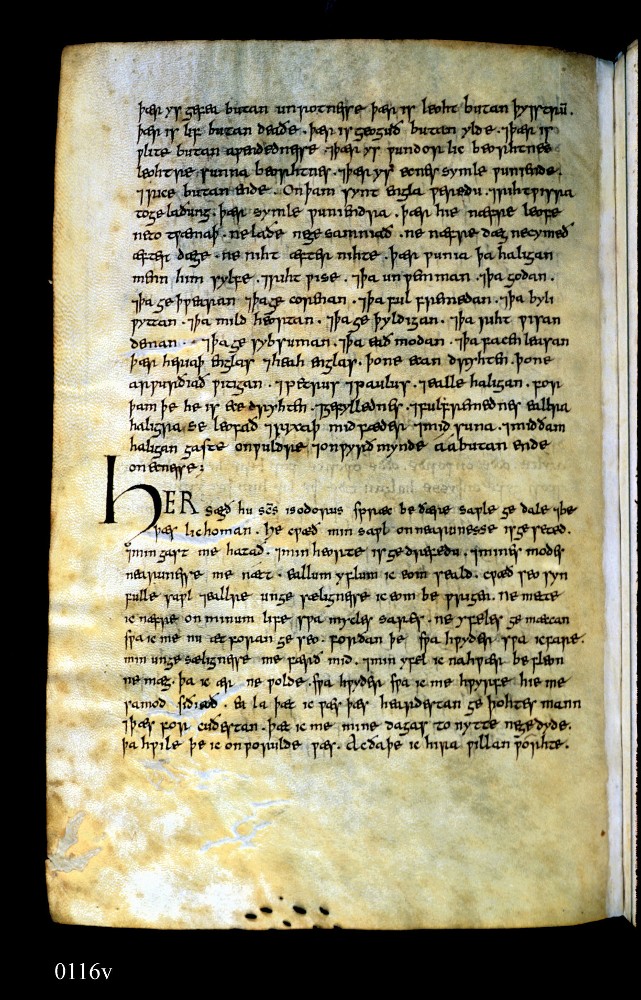 þær ys gefea butan unrotnesse þær is leoht butan þystrū.
þær is lif butan deaðe. þær is geoguð butan ylde. ⁊þær is
wlite butan awendednesse. ⁊þær ys wundorlic beorhtnes
leohtre sunna beorhtnes. ⁊þær ys ecnes symle wuniende.
⁊rice butan ende. On þam synt engla weredu. ⁊rihtwisra
togeladung. þær symle wuniendra. þær hie næfre leofe
ne to twæmaþ. ne lade ne gesamniað. ne næfre dæg ne cymeð
æfter dæge. ne niht æfter nihte. þær wunia þa haligan
menn him sylfe. ⁊riht wise. ⁊þa unwemman. ⁊þa godan.
⁊þa geþwæran ⁊þa gecorenan. ⁊þa ful fremedan. ⁊þa byli
wyttan. ⁊þa mild heortan. ⁊þa geþyldigan. ⁊þa riht wisan
denan. ⁊þa gesybsuman. ⁊þa ead modan. ⁊þa facenleasan
þær heriaþ englas ⁊heah englas. þone ecan dryhten. þone
arwurðiað witigan. ⁊petrus ⁊paulus. ⁊ealle haligan. for
þam þe he is ece dryhten. ⁊gefyllednes. ⁊fulfremednes ealra
haligra. se leofað ⁊rixaþ mid fæder ⁊mid suna. ⁊mid dam
haligan gaste on wuldre ⁊on wyrð mynde áábutan ende
on ecnesse:
HER sægð hu scs isodorius spræc be ðære saple ge dale ⁊be
þæs lichoman. he cwæð min sawl on nearunesse is geseted.
⁊min gast me hatað. ⁊min heorte is gedrefedu. ⁊mines modes
nearunesse me næt. eallum yflum ic eom seald. cwæð seo syn
fulle sawl ⁊ealre unge sælignesse ic eom be wrigen. ne mette
ic næfre on minum life swa mycles sares. ne yfeles gemæccan
swa ic me nu ætforan geseo. forðan þe swa hwyder swa ic fare.
min unge sælignesse me færð mid. ⁊min yfel ic nahwær be fleon
ne mæg. þa ic ær ne wolde. swa hwyder swa ic me hwyrfe hie me
samod siðiað. Ea la þæt ic wæs þær heardestan geþohtes mann
⁊þæs for cuðestan. þæt ic me mine dagas to nytte ne gedyde.
þa hwile þe ic on worulde wæs. Ac ða þe ic hira willan worhte.
0116v